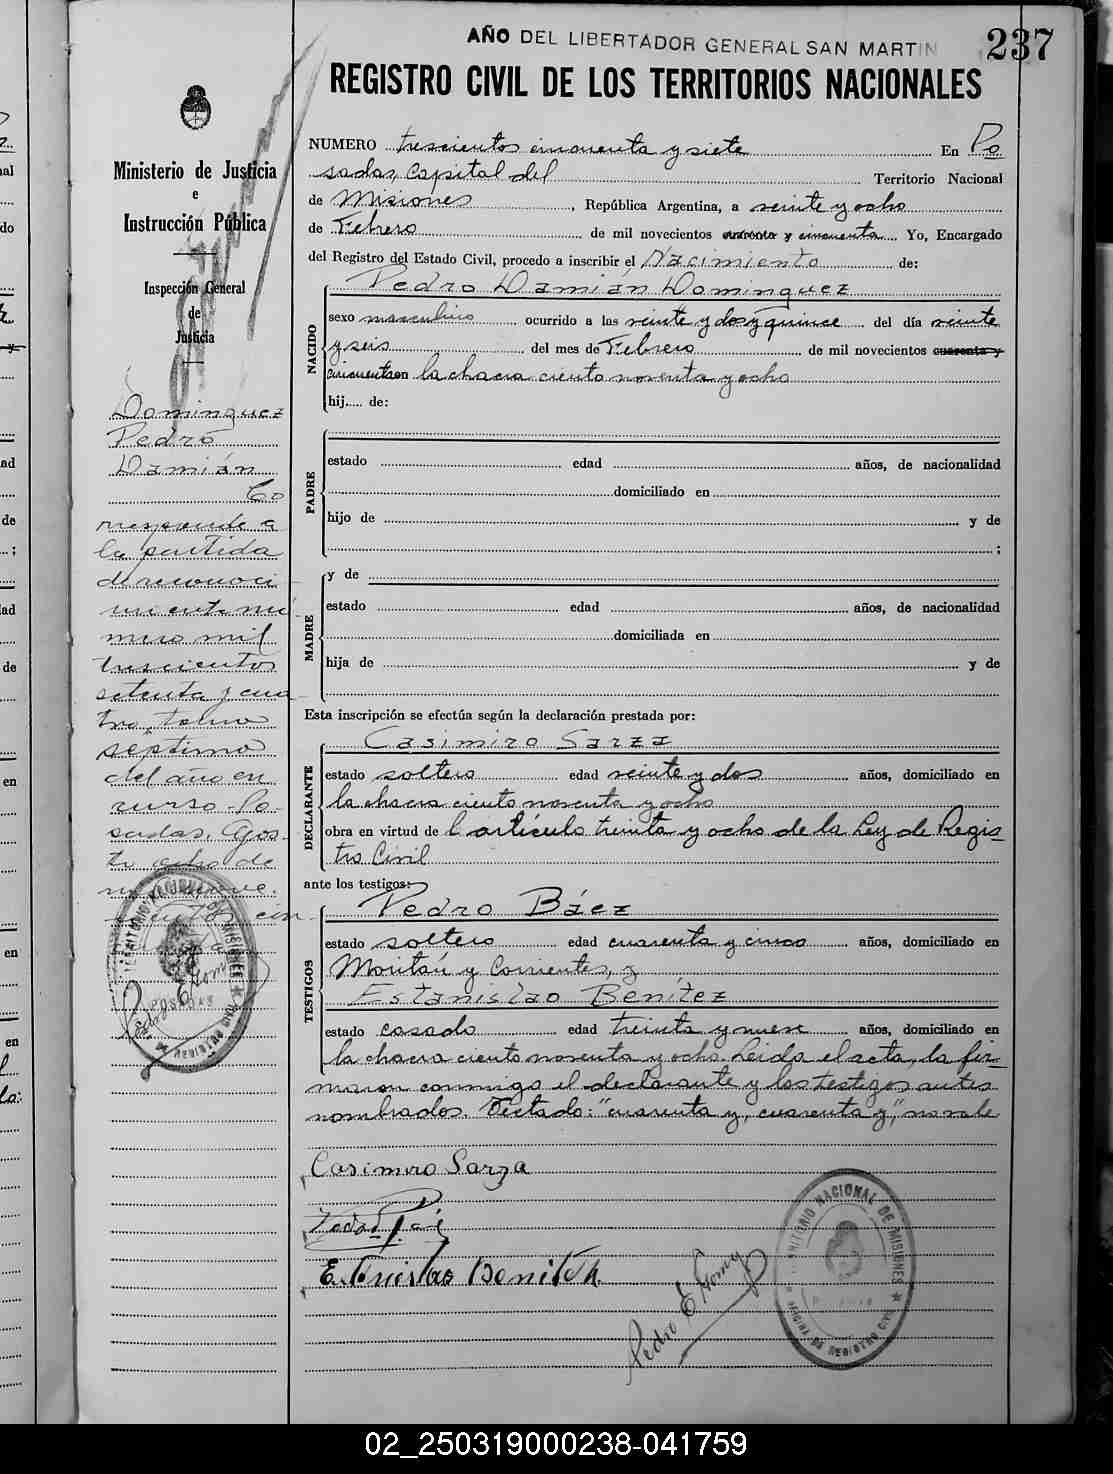 AÑO DEL LIBERTADOR GENERAL SAN MARTIN
237
REGISTRO CIVIL DE LOS TERRITORIOS NACIONALES
Ministerio de Justicia
e
Instrucción Pública
Inspección General
de
Justicia
Dominguez
Pedro
Damián
Co
rresponde a
la partida
de reconoci
miento nú
mero mil
trescientos
setenta y cua
tro, tomo
séptimo
del año en
curso. Po
sadas, Agos
to ocho de
mil nove
cientos cin
TERRITORIO NACIONAL DE MISIONES
POSADAS
Pedro E Gomy
NUMERO trescientos cincuenta y siete En Po
sadas, Capital del Territorio Nacional
de Misiones, República Argentina, a veinte y ocho
de Febrero de mil novecientos cuarenta y cincuenta. Yo, Encargado
del Registro del Estado Civil, procedo a inscribir el Nacimiento de:
Pedro Damián Dominguez
NACIDO
sexo masculino ocurrido a las veinte y dos y quince del día veinte
y seis del mes de Febrero de mil novecientos cuarenta y
cincuenta en la chacra ciento noventa y ocho
hij..... de:
PADRE
estado edad años, de nacionalidad
domiciliado en
hijo de y de
;
MADRE
y de
estado edad años, de nacionalidad
domiciliada en
hija de y de
Esta inscripción se efectúa según la declaración prestada por:
Casimiro Sarza
DECLARANTE
estado soltero edad veinte y dos años, domiciliado en
la chacra ciento noventa y ocho
obra en virtud de l artículo treinta y ocho de la Ley de Regis
tro Civil
ante los testigos:
Pedro Báez
TESTIGOS
estado soltero edad cuarenta y cinco años, domiciliado en
Moritán y Corrientes, y
Estanislao Benítez
estado casado edad treinta y nueve años, domiciliado en
la chacra ciento noventa y ocho. Leida el acta, la fir
maron conmigo el declarante y los testigos antes
nombrados. Tectado: "cuarenta y, cuarenta y," no vale
Casimiro Sarza
Pedro E Gomy
TERRITORIO NACIONAL DE MISIONES
OFICINA DE REGISTRO CIVIL
02_250319000238-041759